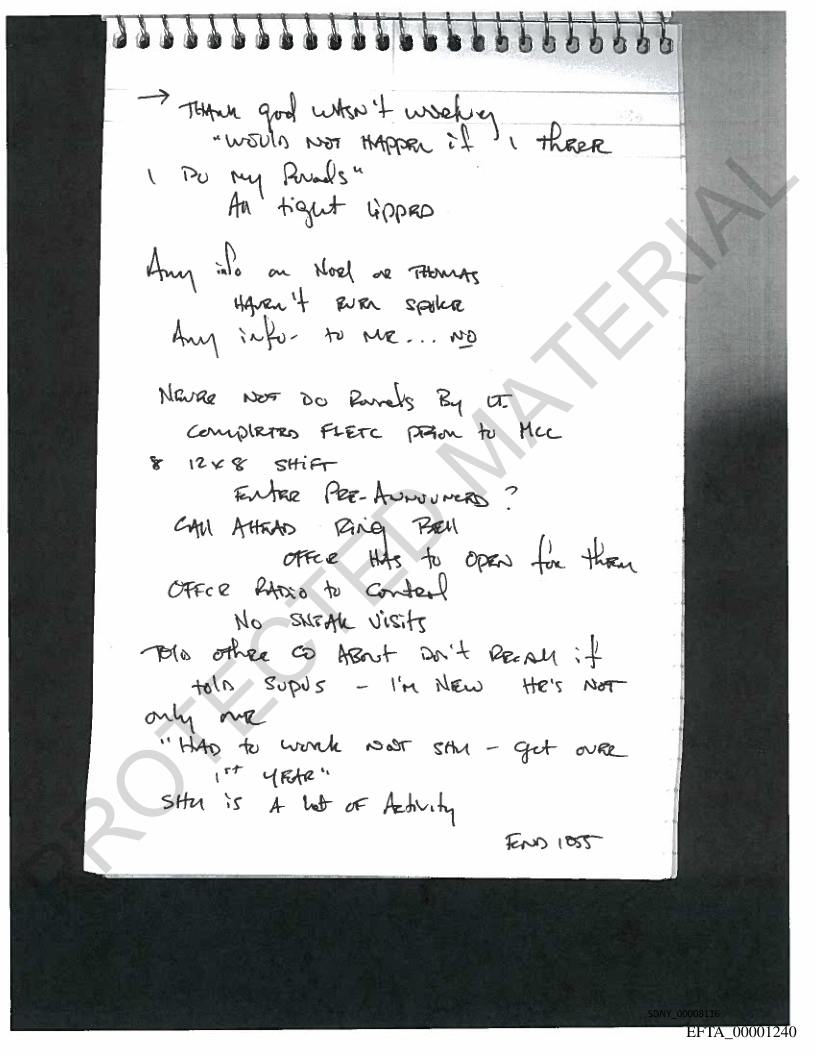 → THANK god WASN't working
"WOULD NOT HAPPEN if I THERE
I DO my Rounds"
All tight lippED
Any info on Noel or THOMAS
HAVEN't EVEN SPOKE
Any info- to ME... NO
NEVER NOT DO Rounds By LT.
COMPLETED FLETC PRIOR to MCC
8 12 x 8 SHiFT
ENTER PRE-ANNOUNCED?
CAll AHEAD RING BEll
OFFCR HAS to OPEN for them
OFFCR RADIO to Control
No SNEAK Visits
TOlD other CO ABOUT Don't RECAll if
tolD SUPUS - I'M NEW HE'S NOT
only ONE
"HAD to work SHU - get OVER
1st YEAR"
SHU is A lot OF Activity
END 1055
PROTECTED MATERIAL
SDNY_00008116
EFTA_00001240